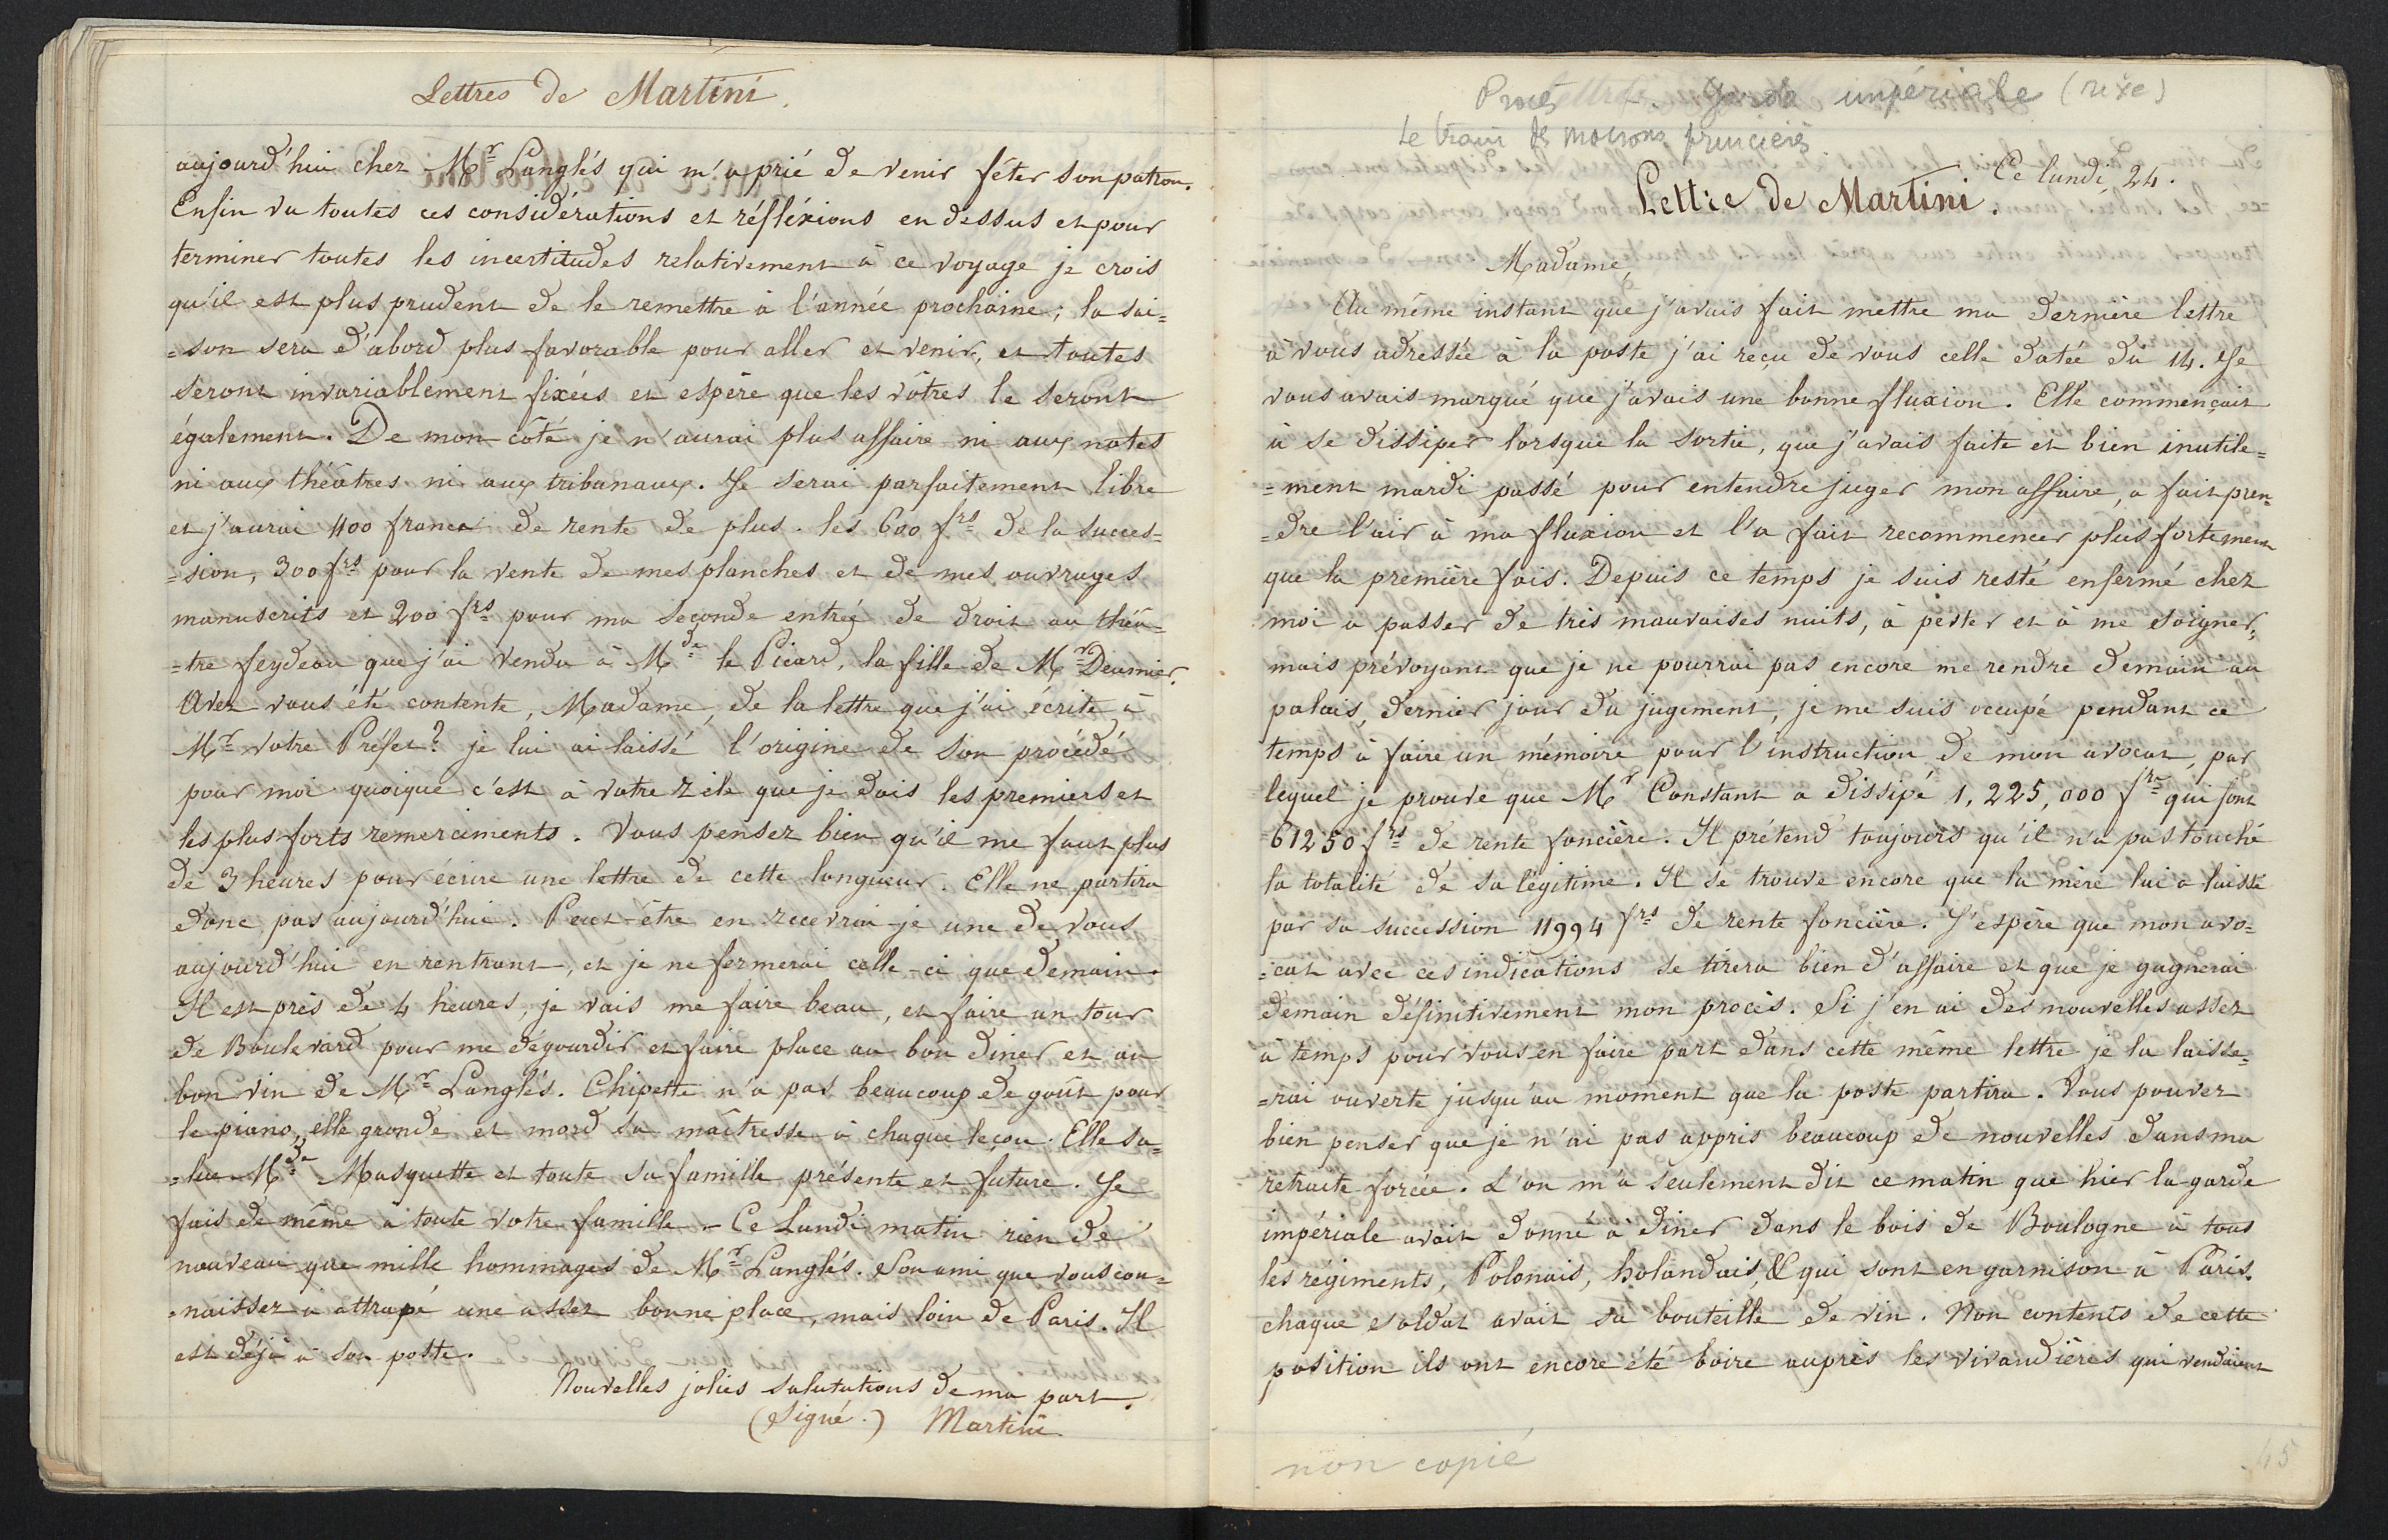 Lettres de Martini.
aujourd'hui chez Mr Langlés qui m'a prié de venir fêter son patron.
Enfin vu toutes ces considérations et réfléxions en dessus et pour
terminer toutes les incertitudes relativement à ce voyage je crois
qu'il est plus prudent de le remettre à l'année prochaine; la sai=
=son sera d'abord plus favorable pour aller et venir, et toutes
seront invariablement fixées et espère que les vôtres le seront
également. De mon côté je n'aurai plus affaire ni aux notes
ni aux théâtres ni aux tribunaux. Je serai parfaitement libre
et j'aurai 1100 francs de rente de plus. les 600 frs de la succes=
=sion, 300 frs pour la vente de mes planches et de mes ouvrages
manuscrits et 200 frs pour ma seconde entrée de droit au théâ=
=tre feydeau que j'ai vendu à Mde le Picard, la fille de Mr Deumier.
Avez vous été contente, Madame, de la lettre que j'ai écrite à
Mr votre Préfet? je lui ai laissé l'origine de son procédé
pour moi quoique c'est à votre zèle que je dois les premiers et
les plus forts remerciments. Vous pensez bien qu'il me faut plus
de 3 heures pour écrire une lettre de cette longueur. Elle ne partira
donc pas aujourd'hui. Peut-être en recevrai-je une de vous
aujourd'hui en rentrant, et je ne fermerai celle-ci que demain.
Il est près de 4 heures, je vais me faire beau, et faire un tour
de Boulevard pour me dégourdir et faire place au bon diner et au
bon vin de Mr Langlés. Chipette n'a pas beaucoup de goût pour
le piano, elle gronde et mord sa maîtresse à chaque leçon. Elle sa=
=lue Mde Masquette et toute sa famille présente et future. Je
fais de même à toute votre famille - Ce Lundi matin rien de
nouveau que mille hommages de Mr Langlés. Son ami que vous con=
=naissez a attrapé une assez bonne place, mais loin de Paris. Il
est déjà à son poste.
Nouvelles jolies salutations de ma part.
(Signé.) Martini
Procès Garde impériale (rixe)
le train des maisons princières
Ce lundi 24.
Lettre de Martini.
Madame,
Au même instant que j'avais fait mettre ma dernière lettre
à vous adressée à la poste j'ai reçu de vous celle datée du 14. Je
vous avais marqué que j'avais une bonne fluxion. Elle commençait
à se dissiper lorsque la sortie, que j'avais faite et bien inutile=
=ment mardi passé pour entendre juger mon affaire, a fait pren
=dre l'air à ma fluxion et l'a fait recommencer plus fortement
que la première fois. Depuis ce temps je suis resté enfermé chez
moi à passer de très mauvaises nuits, à pester et à me soigner,
mais prévoyant que je ne pourrai pas encore me rendre demain au
palais, dernier jour du jugement, je me suis occupé pendant ce
temps à faire un mémoire pour l'instruction de mon avocat, par
lequel je prouve que Mr Constant a dissipé 1,225,000 frs qui font
61250 frs de rente foncière. Il prétend toujours qu'il n'a pas touché
la totalité de sa légitime. Il se trouve encore que la mère lui a laissé
par sa succession 11994 frs de rente foncière. J'espère que mon avo=
=cat avec ces indications se tirera bien d'affaire et que je gagnerai
demain définitivement mon procès. Si j'en ai des nouvelles assez
à temps pour vous en faire part dans cette même lettre je la laisse=
=rai ouverte jusqu'au moment que la poste partira. Vous pouvez
bien penser que je n'ai pas appris beaucoup de nouvelles dans ma
retraite forcée. L'on m'a seulement dit ce matin que hier la garde
impériale avait donné à diner dans le bois de Boulogne à tous
les régiments, Polonais, holandais, & qui sont en garnison à Paris.
chaque soldat avait sa bouteille de vin. Non contents de cette
position ils ont encore été boire auprès les vivandières qui vendaient
non copié
45